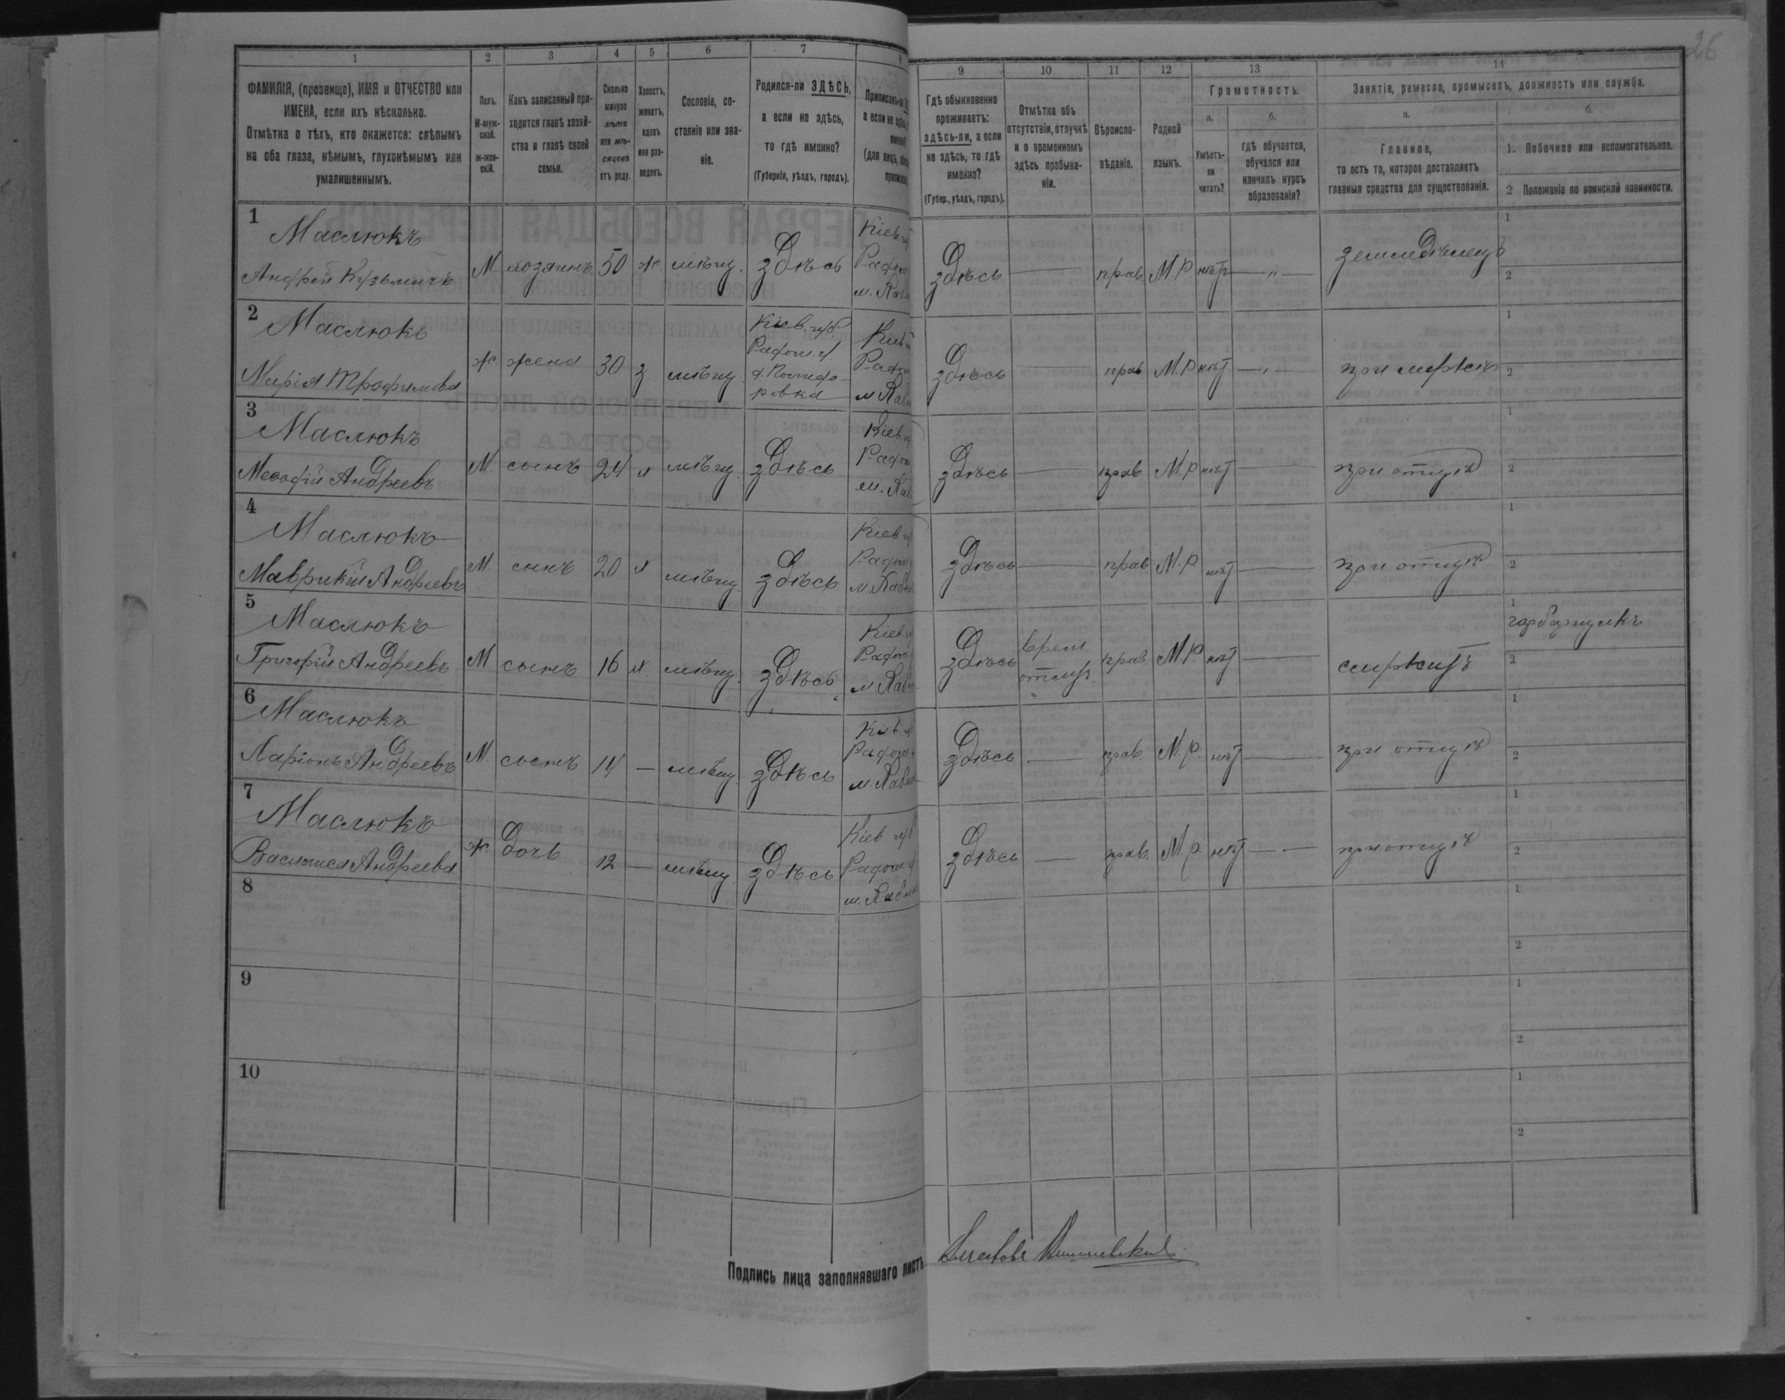 26
1
2
3
4
5
6
7
8
9
10
11
12
13
14
ФАМИЛІЯ, (прозвище), ИМЯ и ОТЧЕСТВО или
ИМЕНА, если ихъ нѣсколько.
Отмѣтка о тѣхъ, кто окажется: слѣпымъ
на оба глаза, нѣмымъ, глухонѣмымъ или
умалишеннымъ.
Полъ.
М-муж-
ской.
ж-жен-
скій.
Какъ записанный при-
ходится главѣ хозяй-
ства и главѣ своей
семьи.
Сколько
минуло
лѣтъ
или мѣ-
сяцевъ
отъ роду.
Холостъ,
женатъ,
вдовъ
или раз-
веденъ.
Сословіе, со-
стояніе или зва-
ніе.
Родился-ли ЗДѢСЬ,
а если не здѣсь,
то гдѣ именно?
(Губернія, уѣздъ, городъ).
Гдѣ обыкновенно
проживаетъ:
здѣсь-ли, а если
не здѣсь, то гдѣ
именно?
(Губер., уѣздъ, городъ).
Отмѣтка объ
отсутствіи, отлучкѣ
и о временномъ
здѣсь пребыва-
ніи.
Вѣроиспо-
вѣданіе.
Родной
языкъ.
Грамотность.
а.
б.
Умѣетъ-
ли
читать?
гдѣ обучается,
обучался или
кончилъ курсъ
образованія?
Занятіе, ремесло, промыселъ, должность или служба.
а.
б.
Главное,
то есть то, которое доставляетъ
главныя средства для существованія.
1. Побочное или вспомогательное.
2 Положеніе по воинской повинности.
1
Маслюкъ
Андрей Кузьмичъ
М
хозяинъ
50
ж.
мѣщ.
здѣсь
Кіев.
м.
здѣсь
прав
М.Р
нѣтъ
земледѣлецъ
2
Маслюкъ
Марія Трофимова
ж.
жена
30
з.
мѣщ
Кіев. губ.
Радом. у
здѣсь
прав
М.Р
нѣт
при мужѣ
3
Маслюкъ
Андреевъ
М.
сынъ
24
х
мѣщ.
здѣсь
Кіев
м.
здѣсь
прав
М.Р
нѣт
при отцѣ
4
Маслюкъ
Маврикій Андреевъ
М.
сынъ
20
х
мѣщ.
здѣсь
Кіев
м
здѣсь
прав
М.Р
нѣт
при отцѣ
5
Маслюкъ
Григорій Андреевъ
М
сынъ
16
х.
мѣщ.
здѣсь
Кіев
м
здѣсь
прав.
М.Р.
нѣт
служитъ
6
Маслюкъ
Ларіонъ Андреевъ
М.
сынъ
14
мѣщ.
здѣсь
м.
здѣсь
прав.
М.р.
нѣт
при отцѣ
7
Маслюкъ
Василиса Андреева
ж.
дочь
12
мѣщ.
здѣсь
Кіев губ
Радом. у
м.
здѣсь
прав.
М.р.
нѣт
при отцѣ
8
9
10
Подпись лица заполнявшаго листъ